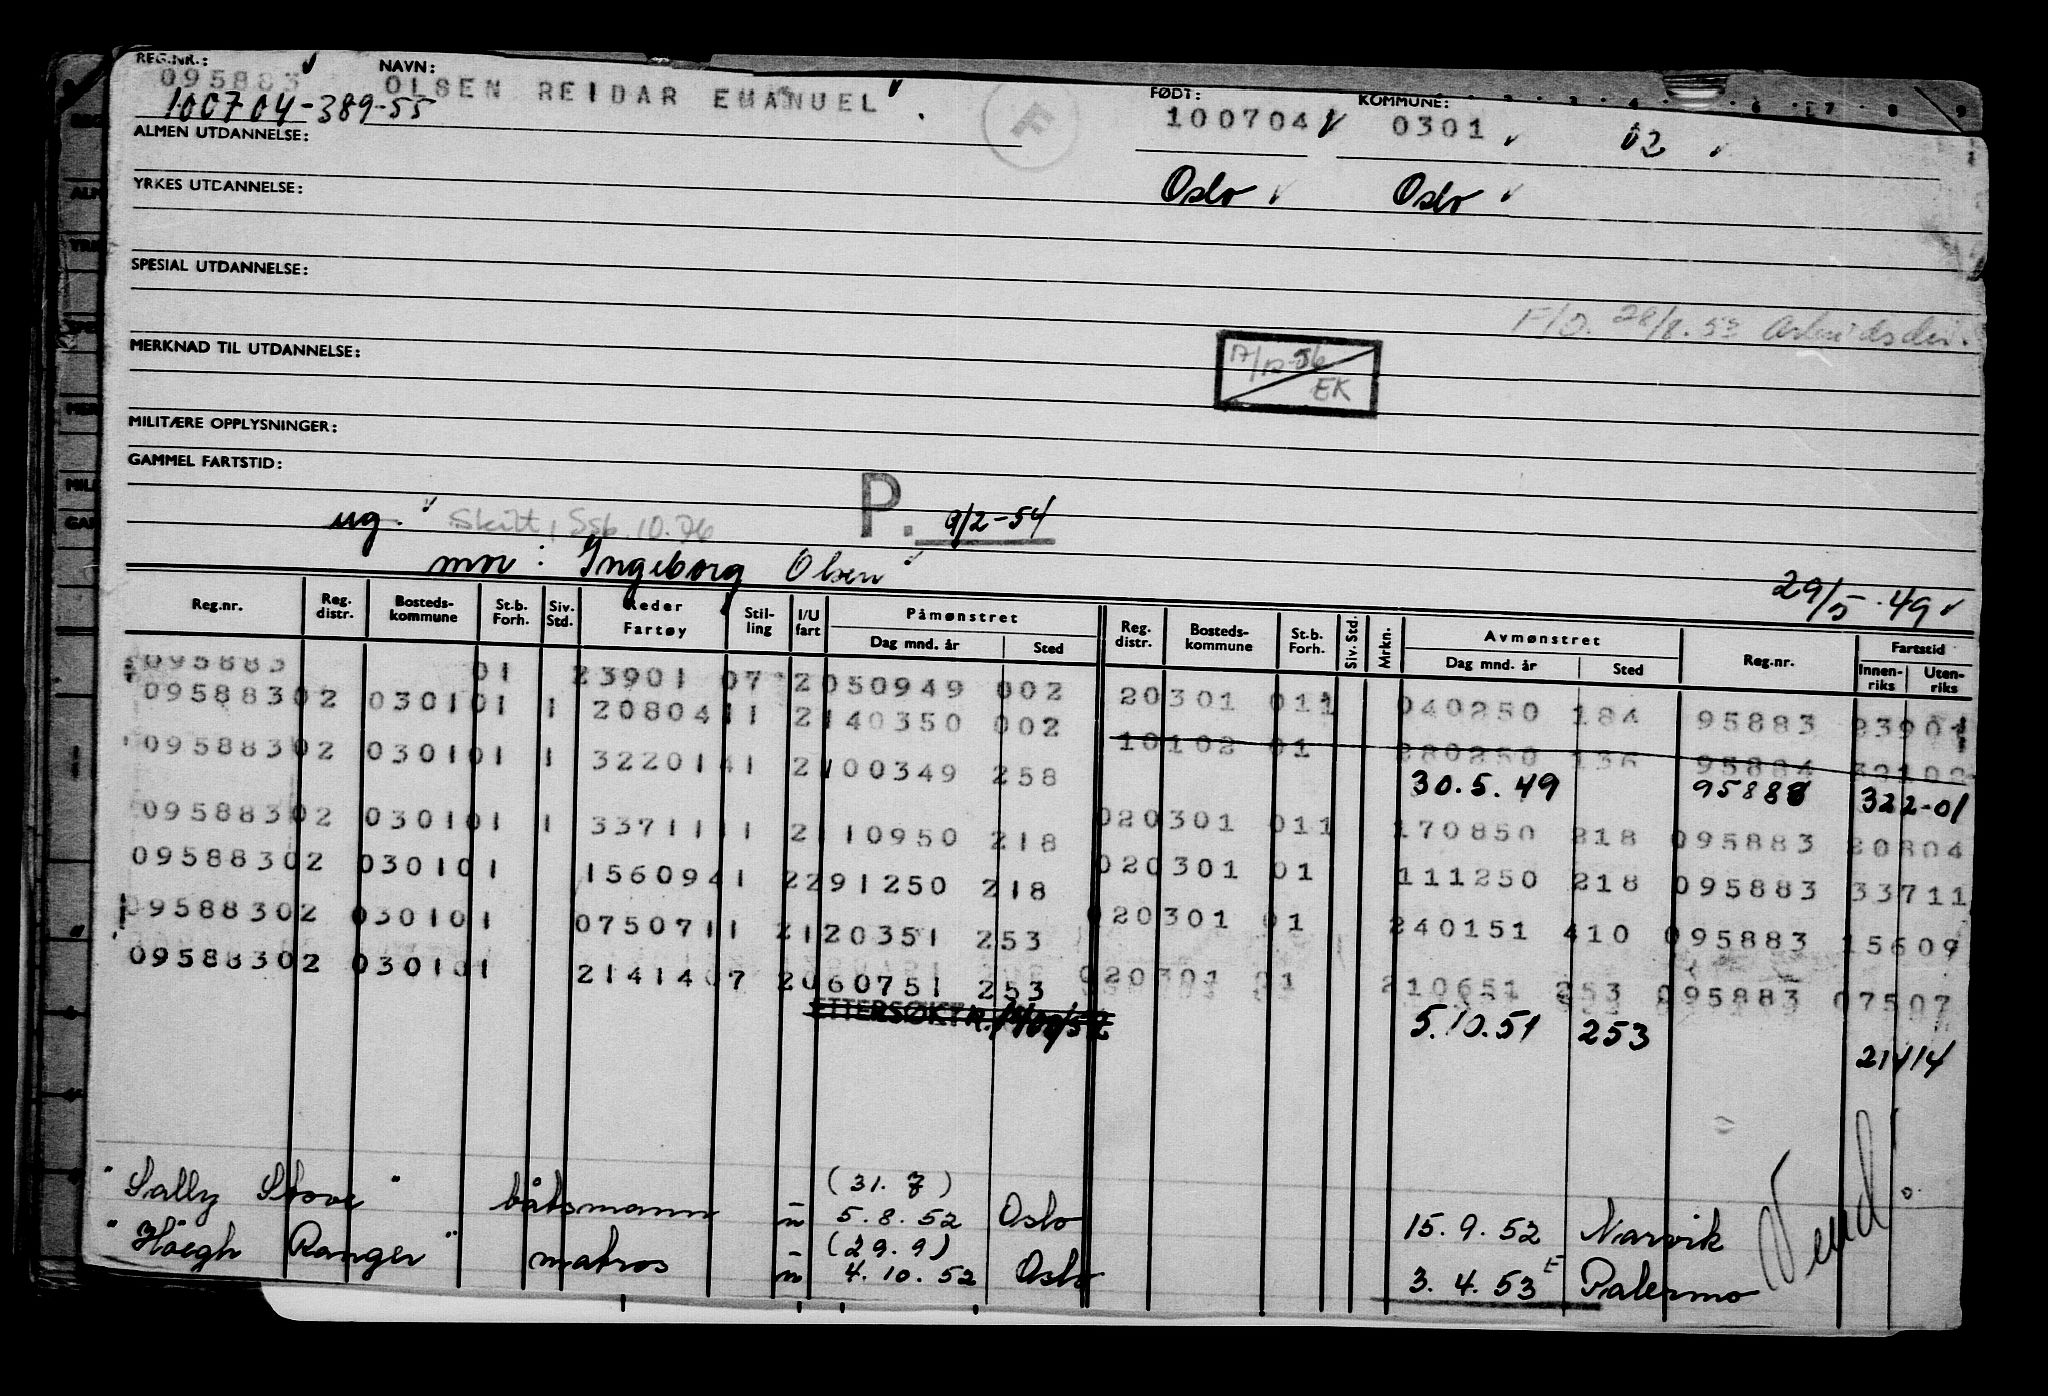 REG.NR.: 095883 NAVN: OLSEN REIDAR EMANUEL FØDT: 100704 KOMMUNE: 0301 02
100704-389-55
ALMEN UTDANNELSE:
YRKES UTDANNELSE: Oslo Oslo
SPESIAL UTDANNELSE:
F/O. 28/8.53
MERKNAD TIL UTDANNELSE: 17/12-56 EK
MILITÆRE OPPLYSNINGER:
GAMMEL FARTSTID:
ug. P. 9/2-54
mor: Ingeborg Olsen
29/5.49
Reg.nr. Reg. distr. Bosteds-kommune St.b. Forh. Siv. Std. Reder Fartøy Stil-ling I/U fart Påmønstret Dag mnd. år Sted Reg. distr. Bosteds-kommune St.b. Forh. Siv. Std. Mrkn. Avmønstret Dag mnd. år Sted Reg.nr. Fartstid Innen-riks Uten-riks
095883 01 23901 07 2 050949 002 20301 011 040250 184 95883 23901
09588302 030101 1 20804 11 2 140350 002 10102 01 280250 136 95884 32102
09588302 030101 1 32201 41 2 100349 258 30.5.49 95883 322-01
09588302 030101 1 33711 11 2 110950 218 020301 011 170850 218 095883 20804
09588302 030101 15609 41 2 291250 218 020301 01 111250 218 095883 33711
09588302 030101 07507 11 2 120351 253 020301 01 240151 410 095883 15609
09588302 030101 21414 07 2 060751 253 020301 01 210651 253 095883 07507
ETTERSØKT 5.10.51 253 21414
"Sally Stove" båtsmann u (31.7) 5.8.52 Oslo 15.9.52 Narvik
"Höegh Ranger" matros u (29.9) 4.10.52 Oslo 3.4.53 E Palermo
Vend!